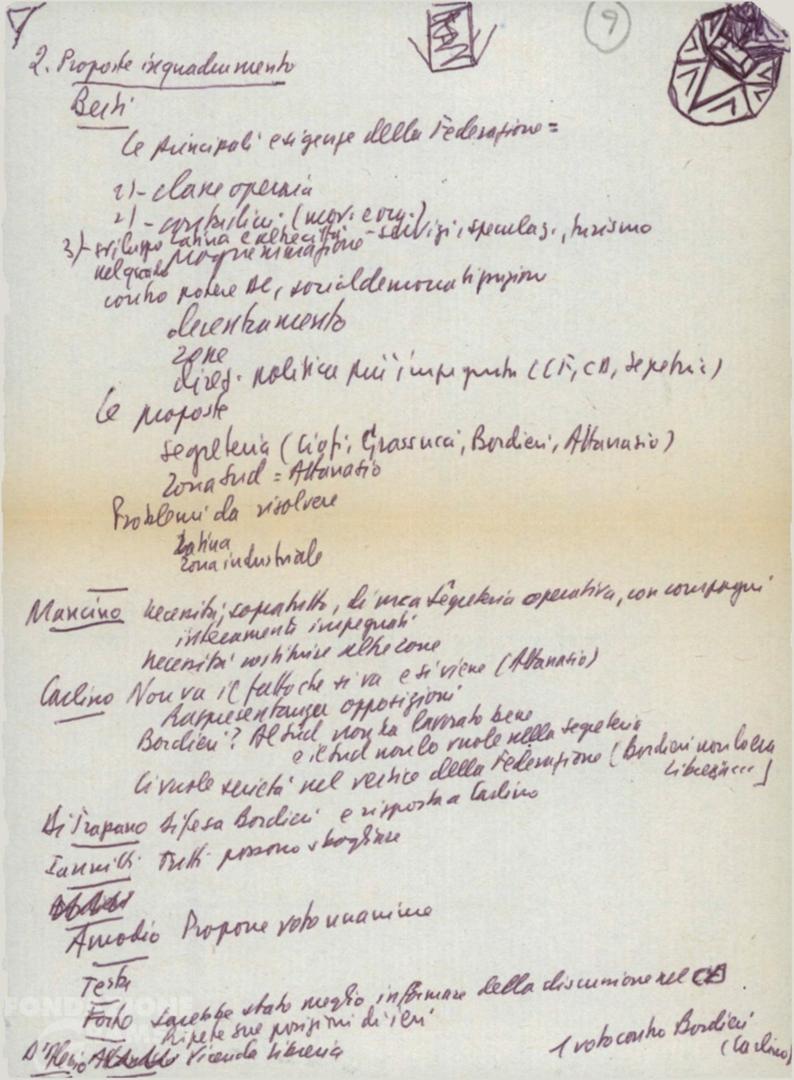 9
2. Proposte inquadramento
Berti
Le principali esigenze della Federazione =
1) - classe operaia
2) - contadini (mov. e org.)
3) - sviluppo Latina e altre città - servizi, speculaz., turismo
nel quale
contro potere DC, socialdemocratizzazione
decentramento
zone
direz. politica più impegnata (CF, CD, Segreteria)
Le proposte
Segreteria (Ciofi, Grassucci, Bordieri, Attanasio)
Zona Sud = Attanasio
Problemi da risolvere
Latina
Zona industriale
Mancino Necessità, sopratutto, di una Segreteria operativa, con compagni
interamente impegnati
Necessità costituire altre zone
Carlino Non va il fatto che si va e si viene (Attanasio)
Rappresentanza opposizioni
Bordieri? Al Sud non ha lavorato bene
e il Sud non lo vuole nella segreteria
Ci vuole serietà nel vertice della Federazione (Bordieri non lo era
Di Trapano Difesa Bordieri e risposta a Carlino
Iannitti Tutti possono sbagliare
Amodio Propone voto unanime
Testa
Forte Sarebbe stato meglio informare della discussione nel CD
Ripete sue posizioni di ieri
D'Alessio Vicenda libreria
1 voto contro Bordieri
(Carlino)
FONDAZIONE